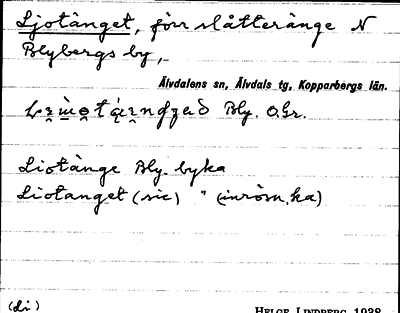 Ljotänget, förr slåtteränge N
Blybergs by,
Älvdalens sn, Älvdals tg, Kopparbergs län.
Bly. O.Gr.
Liotänge Bly. byka
Liotanget (sic) " (inrösn.ka)
(Li)
HELGE LINDBERG 1938